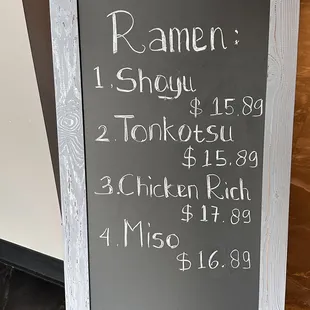 Ramen:
1. Shoyu
$ 15.89
2. Tonkotsu
$ 15.89
3. Chicken Rich
$ 17.89
4. Miso
$ 16.89